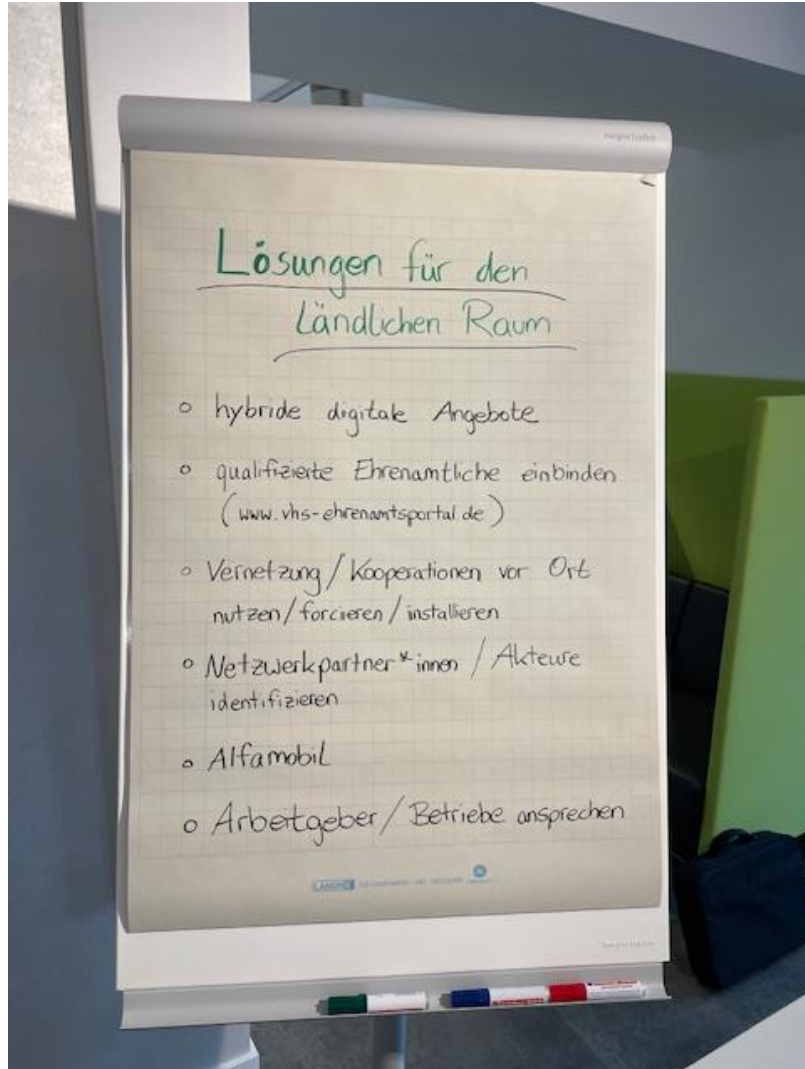 Lösungen für den
Ländlichen Raum
○ hybride digitale Angebote
○ qualifizierte Ehrenamtliche einbinden
(www.vhs-ehrenamtsportal.de)
○ Vernetzung / Kooperationen vor Ort
nutzen / forcieren / installieren
○ Netzwerkpartner*innen / Akteure
identifizieren
○ Alfamobil
○ Arbeitgeber / Betriebe ansprechen